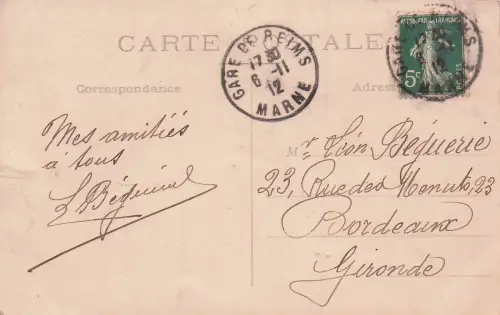 CARTE POSTALE
GARE DE REIMS
17 30
6 -11
12
MARNE
GARE REIMS
12
5c
POSTES
Correspondance
Mes amitiés
à tous
L Béguerie
Mr Léon Béguerie
23, Rue des Menuts, 23
Bordeaux
Gironde